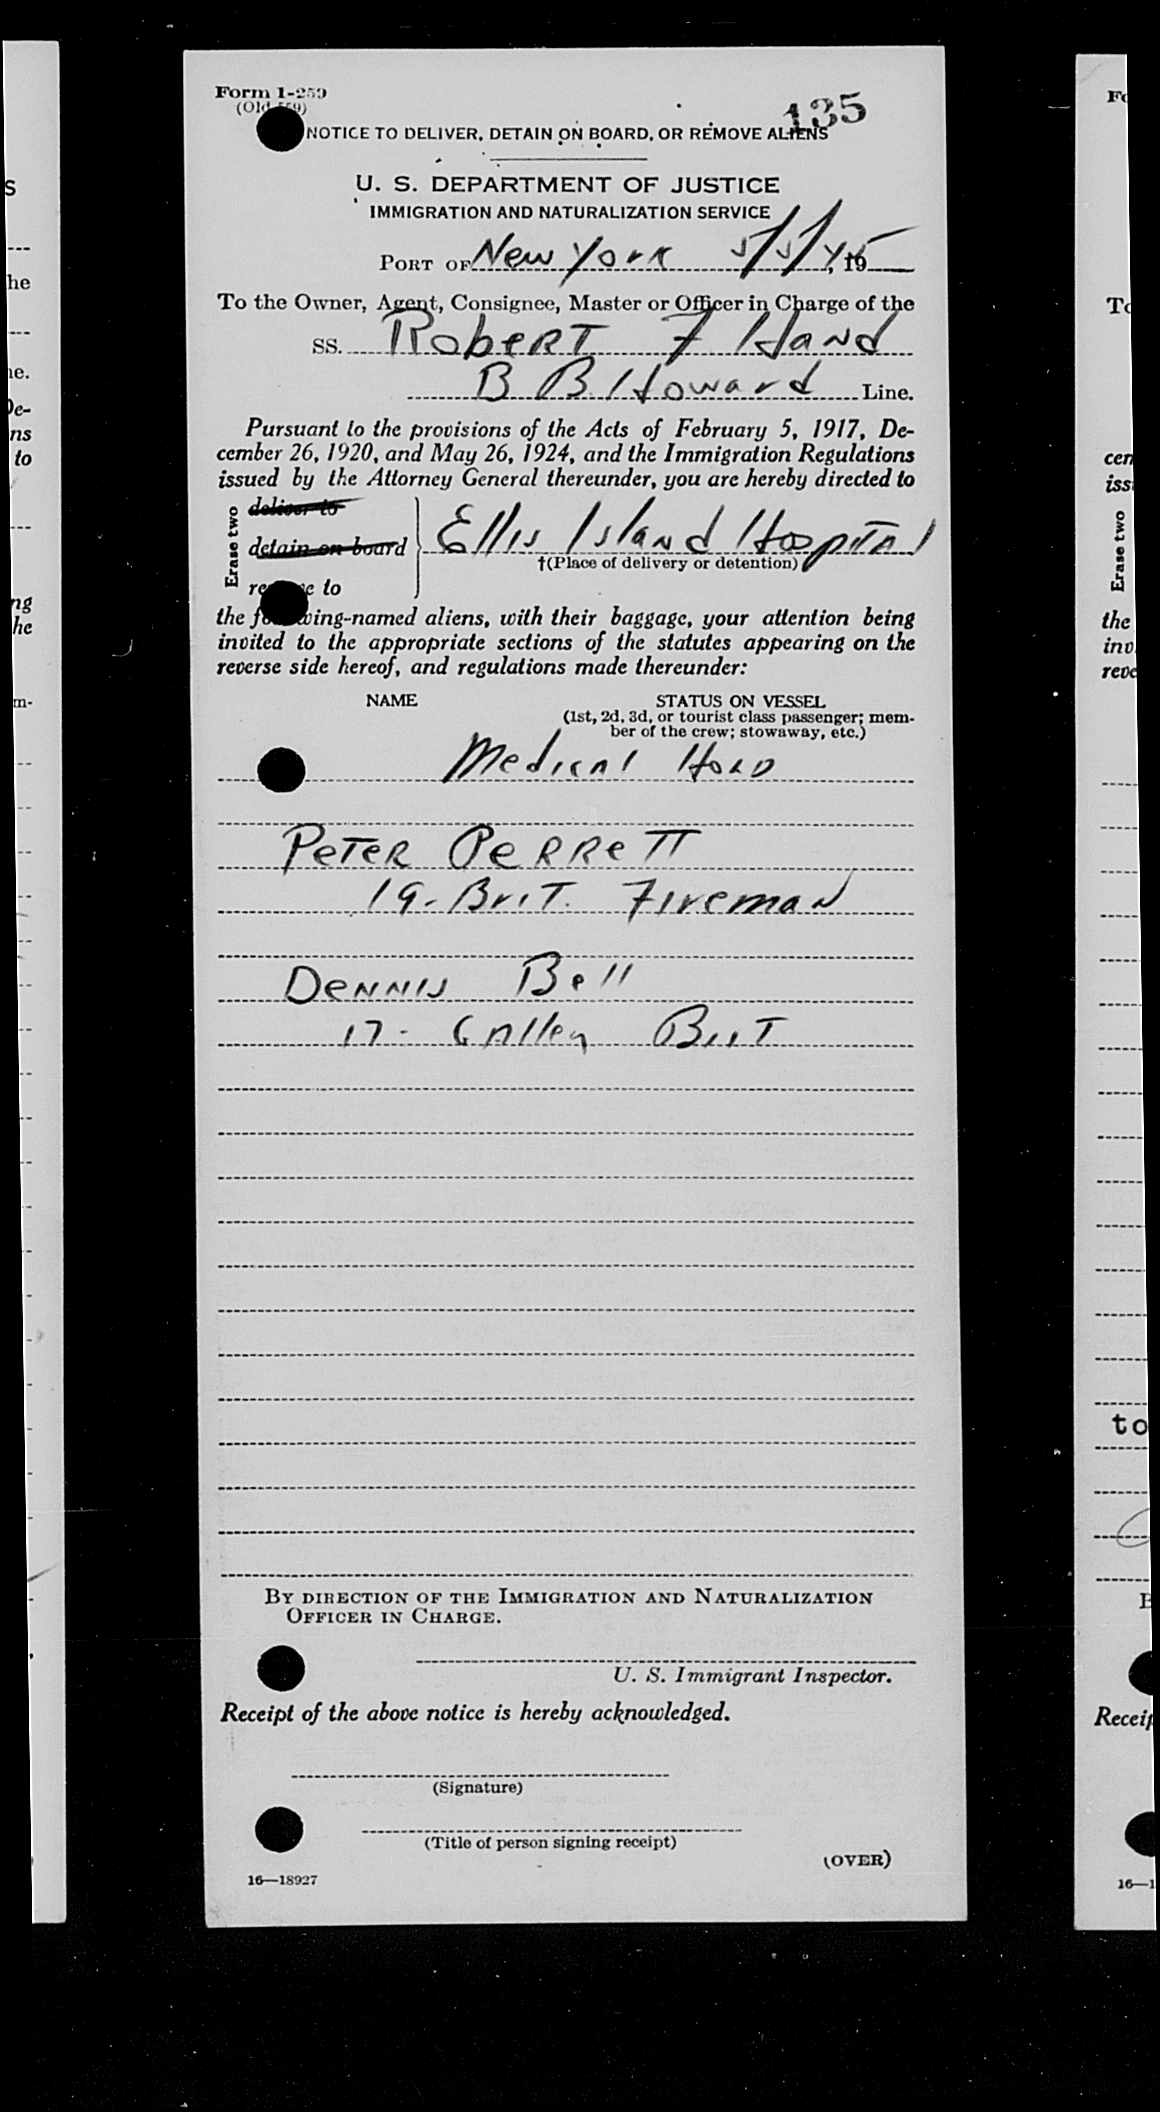 Form 1-259
(Old 559)
135
NOTICE TO DELIVER, DETAIN ON BOARD, OR REMOVE ALIENS
U. S. DEPARTMENT OF JUSTICE
IMMIGRATION AND NATURALIZATION SERVICE
PORT OF New York 5/5/45, 19
To the Owner, Agent, Consignee, Master or Officer in Charge of the
SS. Robert F Hand
B B Howard Line.
Pursuant to the provisions of the Acts of February 5, 1917, De-
cember 26, 1920, and May 26, 1924, and the Immigration Regulations
issued by the Attorney General thereunder, you are hereby directed to
Erase two
deliver to
detain on board
remove to
Ellis Island Hospital
†(Place of delivery or detention)
the following-named aliens, with their baggage, your attention being
invited to the appropriate sections of the statutes appearing on the
reverse side hereof, and regulations made thereunder:
NAME STATUS ON VESSEL
(1st, 2d, 3d, or tourist class passenger; mem-
ber of the crew; stowaway, etc.)
Medical Hold
Peter Perrett
19- Brit. Fireman
Dennis Bell
17- Galley Brit
BY DIRECTION OF THE IMMIGRATION AND NATURALIZATION
OFFICER IN CHARGE.
U. S. Immigrant Inspector.
Receipt of the above notice is hereby acknowledged.
(Signature)
(Title of person signing receipt)
(OVER)
16—18927